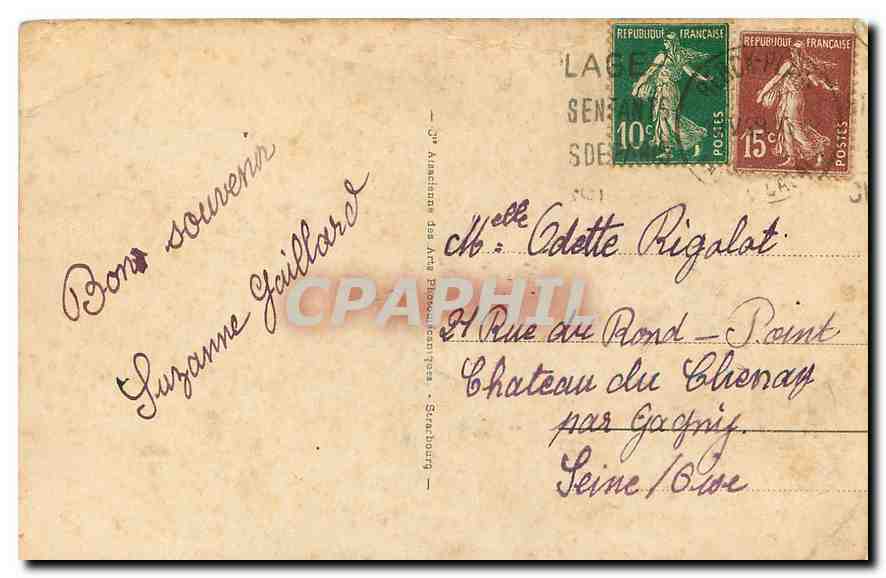 RÉPUBLIQUE FRANÇAISE
10c
POSTES
RÉPUBLIQUE FRANÇAISE
15c
POSTES
LAGE
SENTANTE
SDE
Bon souvenir
Suzanne Gaillard
— Cie Alsacienne des Arts Photomécaniques. - Strasbourg —
CPAPHIL
Melle Odette Rigolot
21 Rue du Rond-Point
Chateau du Chenay
par Gagny.
Seine/Oise